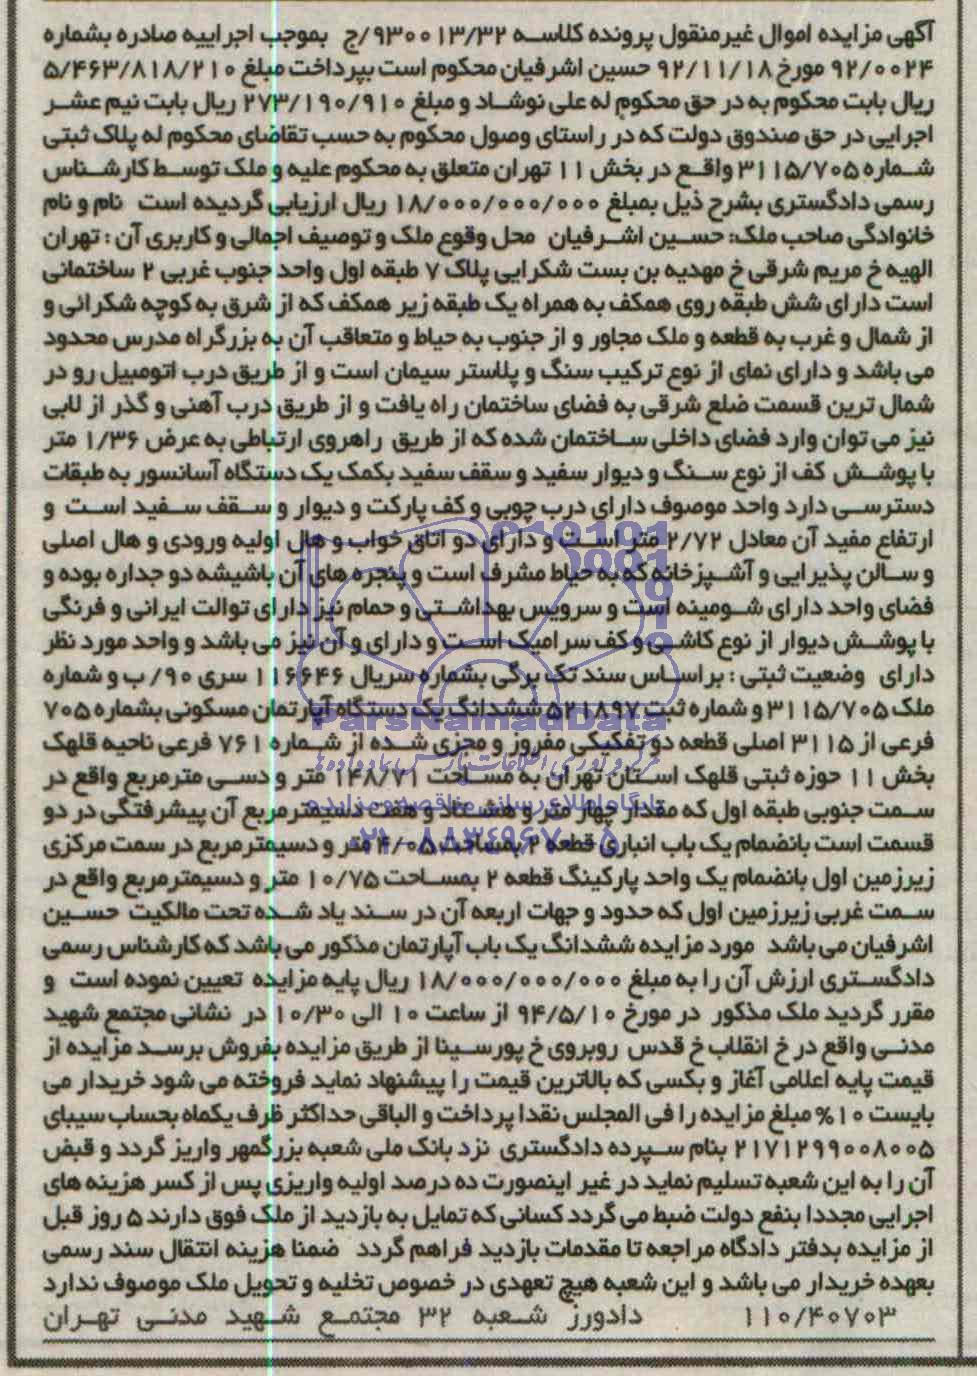 آگهی مزایده اموال غیرمنقول پرونده کلاسه ۹۳۰۰۱۳/۳۲/ج بموجب اجراییه صادره بشماره
۹۲/۰۰۲۴ مورخ ۹۲/۱۱/۱۸ حسین اشرفیان محکوم است بپرداخت مبلغ ۵/۴۶۳/۸۱۸/۲۱۰
ریال بابت محکوم به در حق محکوم له علی نوشاد و مبلغ ۲۷۳/۱۹۰/۹۱۰ ریال بابت نیم عشر
اجرایی در حق صندوق دولت که در راستای وصول محکوم به حسب تقاضای محکوم له پلاک ثبتی
شماره ۳۱۱۵/۷۰۵ واقع در بخش ۱۱ تهران متعلق به محکوم علیه و ملک توسط کارشناس
رسمی دادگستری بشرح ذیل بمبلغ ۱۸/۰۰۰/۰۰۰/۰۰۰ ریال ارزیابی گردیده است نام و نام
خانوادگی صاحب ملک: حسین اشرفیان محل وقوع ملک و توصیف اجمالی و کاربری آن : تهران
الهیه خ مریم شرقی خ مهدیه بن بست شکرایی پلاک ۷ طبقه اول واحد جنوب غربی ۲ ساختمانی
است دارای شش طبقه روی همکف به همراه یک طبقه زیر همکف که از شرق به کوچه شکرائی و
از شمال و غرب به قطعه و ملک مجاور و از جنوب به حیاط و متعاقب آن به بزرگراه مدرس محدود
می باشد و دارای نمای از نوع ترکیب سنگ و پلاستر سیمان است و از طریق درب اتومبیل رو در
شمال ترین قسمت ضلع شرقی به فضای ساختمان راه یافت و از طریق درب آهنی و گذر از لابی
نیز می توان وارد فضای داخلی ساختمان شده که از طریق راهروی ارتباطی به عرض ۱/۳۶ متر
با پوشش کف از نوع سنگ و دیوار سفید و سقف سفید بکمک یک دستگاه آسانسور به طبقات
دسترسی دارد واحد موصوف دارای درب چوبی و کف پارکت و دیوار و سقف سفید است و
ارتفاع مفید آن معادل ۲/۷۲ متر است و دارای دو اتاق خواب و هال اولیه ورودی و هال اصلی
و سالن پذیرایی و آشپزخانه که به حیاط مشرف است و پنجره های آن باشیشه دو جداره بوده و
فضای واحد دارای شومینه است و سرویس بهداشتی و حمام نیز دارای توالت ایرانی و فرنگی
با پوشش دیوار از نوع کاشی و کف سرامیک است و دارای و آن نیز می باشد و واحد مورد نظر
دارای وضعیت ثبتی : براساس سند تک برگی بشماره سریال ۱۱۶۶۴۶ سری ۹۰/ب و شماره
ملک ۳۱۱۵/۷۰۵ و شماره ثبت ۵۲۱۸۹۷ ششدانگ یک دستگاه آپارتمان مسکونی بشماره ۷۰۵
فرعی از ۳۱۱۵ اصلی قطعه دو تفکیکی مفروز و مجزی شده از شماره ۷۶۱ فرعی ناحیه قلهک
بخش ۱۱ حوزه ثبتی قلهک استان تهران به مساحت ۱۴۸/۷۱ متر و دسی مترمربع واقع در
سمت جنوبی طبقه اول که مقدار چهار متر و هشتاد و هفت دسیمترمربع آن پیشرفتگی در دو
قسمت است بانضمام یک باب انباری قطعه ۲ بمساحت ۴/۰۵ متر و دسیمترمربع در سمت مرکزی
زیرزمین اول بانضمام یک واحد پارکینگ قطعه ۲ بمساحت ۱۰/۷۵ متر و دسیمترمربع واقع در
سمت غربی زیرزمین اول که حدود و جهات اربعه آن در سند یاد شده تحت مالکیت حسین
اشرفیان می باشد مورد مزایده ششدانگ یک باب آپارتمان مذکور می باشد که کارشناس رسمی
دادگستری ارزش آن را به مبلغ ۱۸/۰۰۰/۰۰۰/۰۰۰ ریال پایه مزایده تعیین نموده است و
مقرر گردید ملک مذکور در مورخ ۹۴/۵/۱۰ از ساعت ۱۰ الی ۱۰/۳۰ در نشانی مجتمع شهید
مدنی واقع در خ انقلاب خ قدس روبروی خ پورسینا از طریق مزایده بفروش برسد مزایده از
قیمت پایه اعلامی آغاز و بکسی که بالاترین قیمت را پیشنهاد نماید فروخته می شود خریدار می
بایست ۱۰% مبلغ مزایده را فی المجلس نقدا پرداخت و الباقی حداکثر ظرف یکماه بحساب سیبای
۲۱۷۱۲۹۹۰۰۸۰۰۵ بنام سپرده دادگستری نزد بانک ملی شعبه بزرگمهر واریز گردد و قبض
آن را به این شعبه تسلیم نماید در غیر اینصورت ده درصد اولیه واریزی پس از کسر هزینه های
اجرایی مجددا بنفع دولت ضبط می گردد کسانی که تمایل به بازدید از ملک فوق دارند ۵ روز قبل
از مزایده بدفتر دادگاه مراجعه تا مقدمات بازدید فراهم گردد ضمنا هزینه انتقال سند رسمی
بعهده خریدار می باشد و این شعبه هیچ تعهدی در خصوص تخلیه و تحویل ملک موصوف ندارد
۱۱۰/۴۰۷۰۳ دادورز شعبه ۳۲ مجتمع شهید مدنی تهران
ParsNamadData
پایگاه اطلاع رسانی مناقصه و مزایده
۰۲۱-۸۸۳۴۹۶۷۰-۵